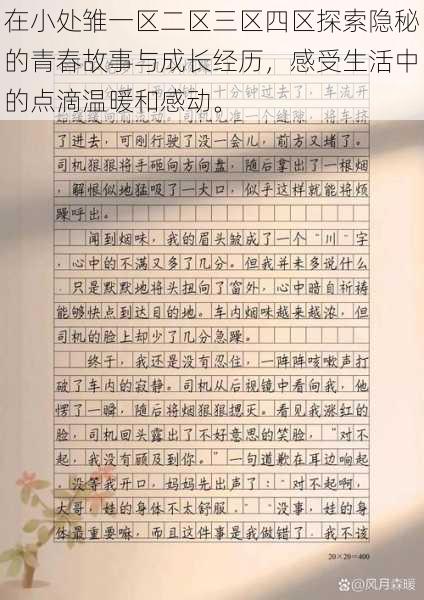 在小处雏一区二区三区四区探索隐秘
的青春故事与成长经历，感受生活中
的点滴温暖和感动。
十分钟过去了，车流开
始缓缓向前流动。司机见准一个缝隙，将车挤
了进去，可刚行驶了没一会儿，前方又堵了。
司机狠狠将手砸向方向盘，随后拿出了一根烟
，解恨似地猛吸了一大口，似乎这样就能将烦
躁呼出。
闻到烟味，我的眉头皱成了一个“川”字
，心中的不满又多了几分。但我并未多说什么
，只是默默地将头扭向了窗外，心中暗自祈祷
能够快点到达目的地。车内烟味越来越浓，但
司机的脸上却少了几分急躁。
终于，我还是没有忍住，一阵阵咳嗽声打
破了车内的寂静。司机从后视镜中看向我，他
愣了一瞬，随后将烟狠狠摁灭。看见我涨红的
脸，司机回头露出了不好意思的笑脸，“对不
起，我没有顾及到你。”一句道歉在耳边响起
，没等我开口，妈妈先出声了：“对不起啊，
大哥，娃的身体不太舒服。”“没事，娃的身
体最重要嘛，而且这件事是我做错了，我不该
20×20=400
百家号@风月森暖